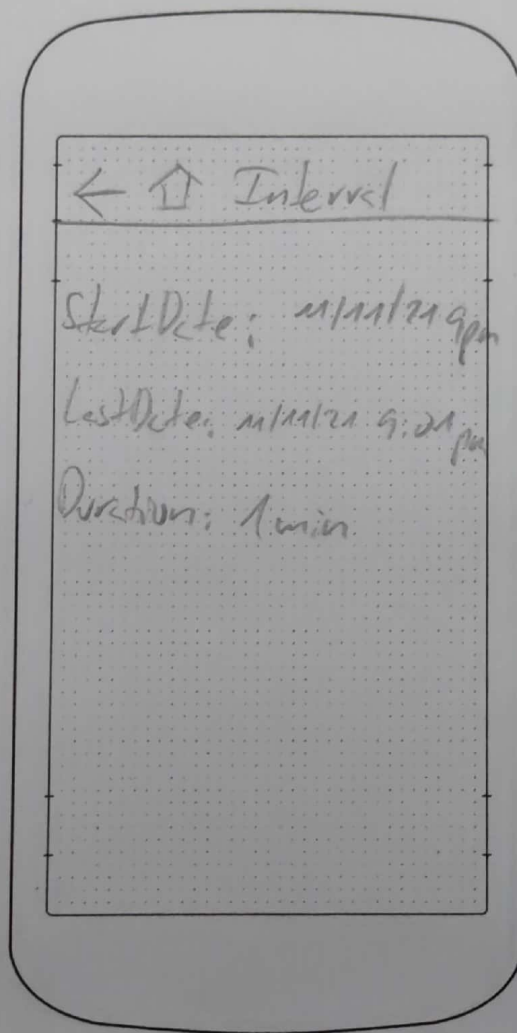 ← Interval
StartDate: 11/11/21 9pm
LastDate: 11/11/21 9:01pm
Duration: 1 min